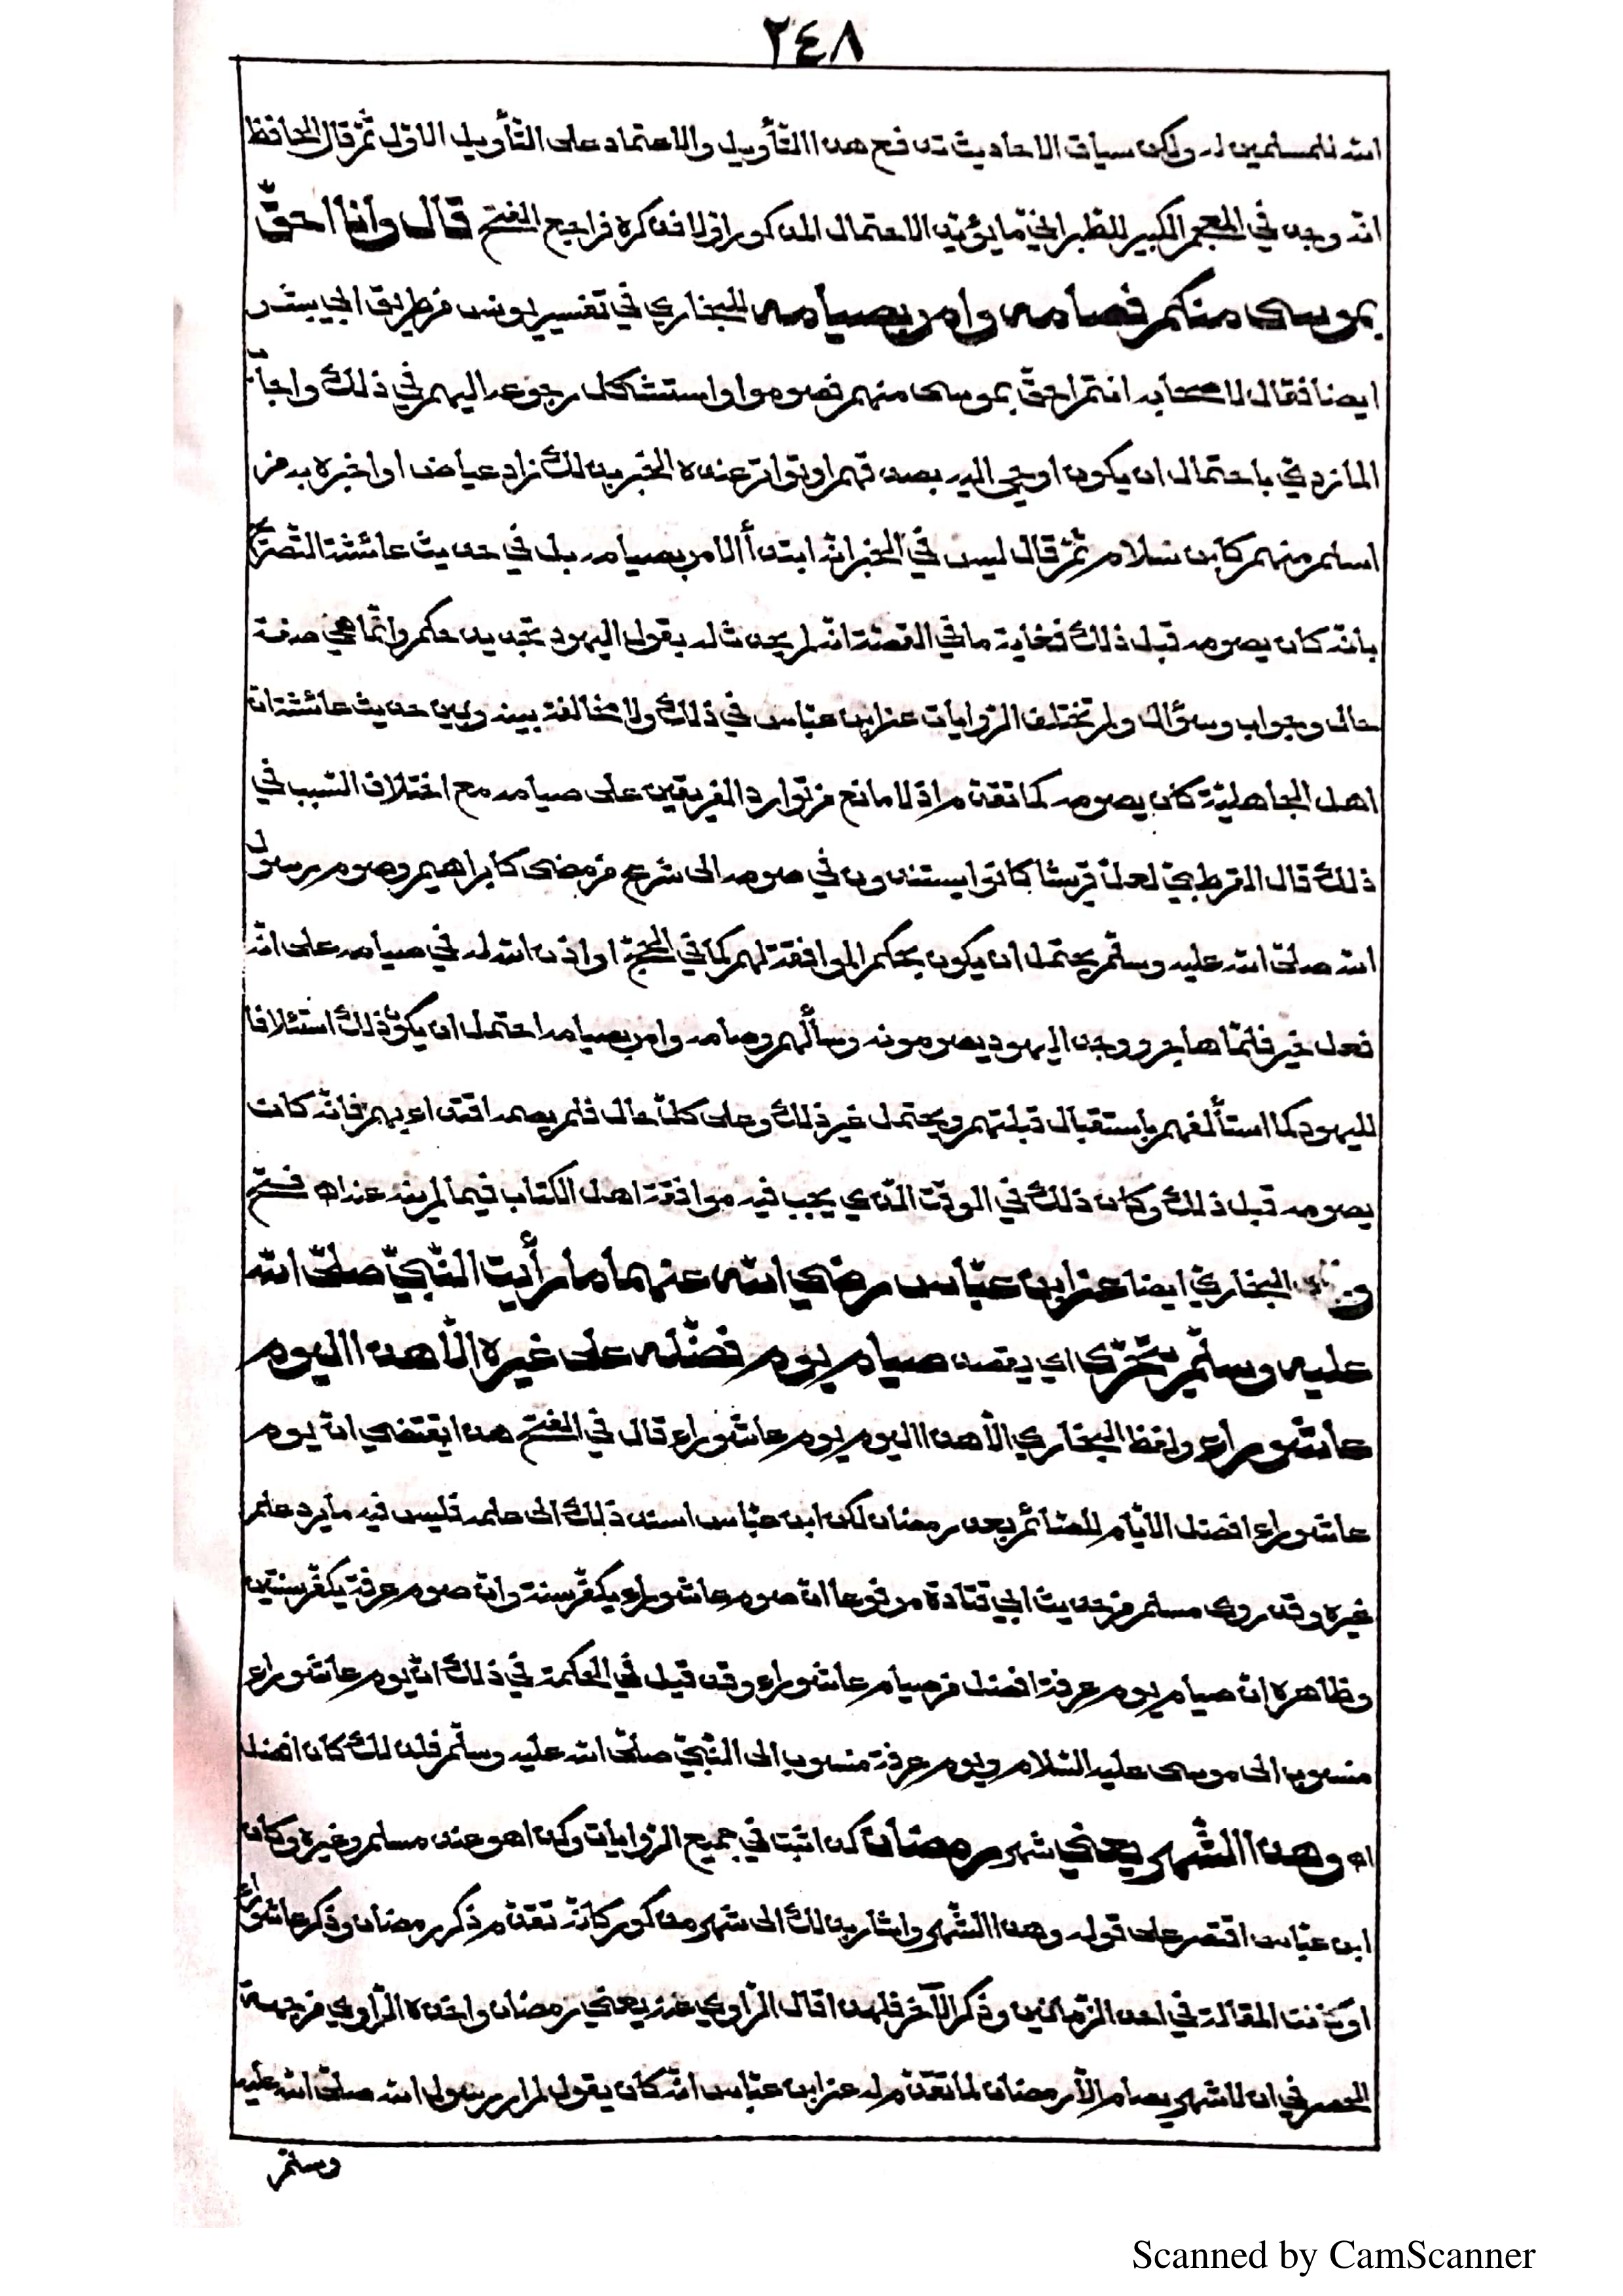 ٢٤٨
الله للمسلمين له ولكن سياق الاحاديث تدفع هذا التأويل والاعتماد على التأويل الاوّل ثمّ قال الحافظ
انه وجد في المعجم الكبير للطبراني ما يؤيّد الاحتمال المذكور اوّلا فذكره فراجع الفتح قال وانا احقّ
بموسى منكم فصامه وامر بصيامه للبخاري في تفسير يونس من طريق ابي بشر
ايضا فقال لاصحابه انتم احقّ بموسى منهم فصوموا واستشكل رجوعه اليهم في ذلك واجاب
المازري باحتمال ان يكون اوحي اليه بصدقهم او تواتر عنده الخبر بذلك زاد عياض او اخبره به من
اسلم منهم كابن سلام ثمّ قال ليس في الخبر انّه ابتدأ الامر بصيامه بل في حديث عائشة التصريح
بأنّه كان يصومه قبل ذلك فغاية ما في القصّة انّه لم يحدث له بقول اليهود تجديد حكم وانّما هي صفة
حال وجواب وسؤال ولم تختلف الرّوايات عن ابن عبّاس في ذلك ولا مخالفة بينه وبين حديث عائشة انّ
اهل الجاهليّة كان يصومه كما تقدّم اذ لا مانع من توارد الفريقين على صيامه مع اختلاف السّبب في
ذلك قال القرطبيّ لعلّ قريشا كانوا يستندون في صومه الى شرع من مضى كابراهيم وصوم رسول
الله صلّى الله عليه وسلّم يحتمل ان يكون بحكم الموافقة لهم كما في الحجّ او اذن الله له في صيامه على انّه
فعل خير فلمّا هاجر ووجد اليهود يصومونه وسألهم وصامه وامر بصيامه احتمل ان يكون ذلك استئلافا
لليهود كما استألفهم باستقبال قبلتهم ويحتمل غير ذلك وعلى كلّ حال فلم يصمه اقتداء بهم فانّه كان
يصومه قبل ذلك وكان ذلك في الوقت الّذي يحب فيه موافقة اهل الكتاب فيما لم ينه عنه اه فتح
البخاري ايضا عن ابن عبّاس رضي الله عنهما ما رأيت النّبيّ صلّى الله
عليه وسلّم يتحرّى اي يقصد صيام يوم فضّله على غيره الّا هذا اليوم
عاشوراء ولفظ البخاري الّا هذا اليوم يوم عاشوراء قال في الفتح هذا يقتضي انّ يوم
عاشوراء افضل الأيّام للصّائم بعد رمضان لكن ابن عبّاس اسند ذلك الى علمه فليس فيه ما يرد علم
غيره وقد روى مسلم من حديث ابي قتادة مرفوعا انّ صوم عاشوراء يكفّر سنة وانّ صوم عرفة يكفّر سنتين
وظاهره انّ صيام يوم عرفة افضل من صيام عاشوراء وقد قيل في الحكمة في ذلك انّ يوم عاشوراء
منسوب الى موسى عليه السّلام ويوم عرفة منسوب الى النّبيّ صلّى الله عليه وسلّم فلذلك كان افضل
اه وهذا الشّهر يعني شهر رمضان كذا ثبت في جميع الرّوايات وكذا هو عند مسلم وغيره وكأن
ابن عبّاس اقتصر على قوله وهذا الشّهر واشار بذلك الى شهر مذكور كانّه تقدّم ذكر رمضان وذكر عاشوراء
او كانت المقالة في احد الزّمانين وذكر الآخر فلهذا قال الرّاوي عنه يعني رمضان واخذه الرّاوي من جهة
الحصر في ان لا شهر يصام الّا رمضان لما تقدّم له عن ابن عبّاس انّه كان يقول لم ار رسول الله صلّى الله عليه
وسلّم
Scanned by CamScanner